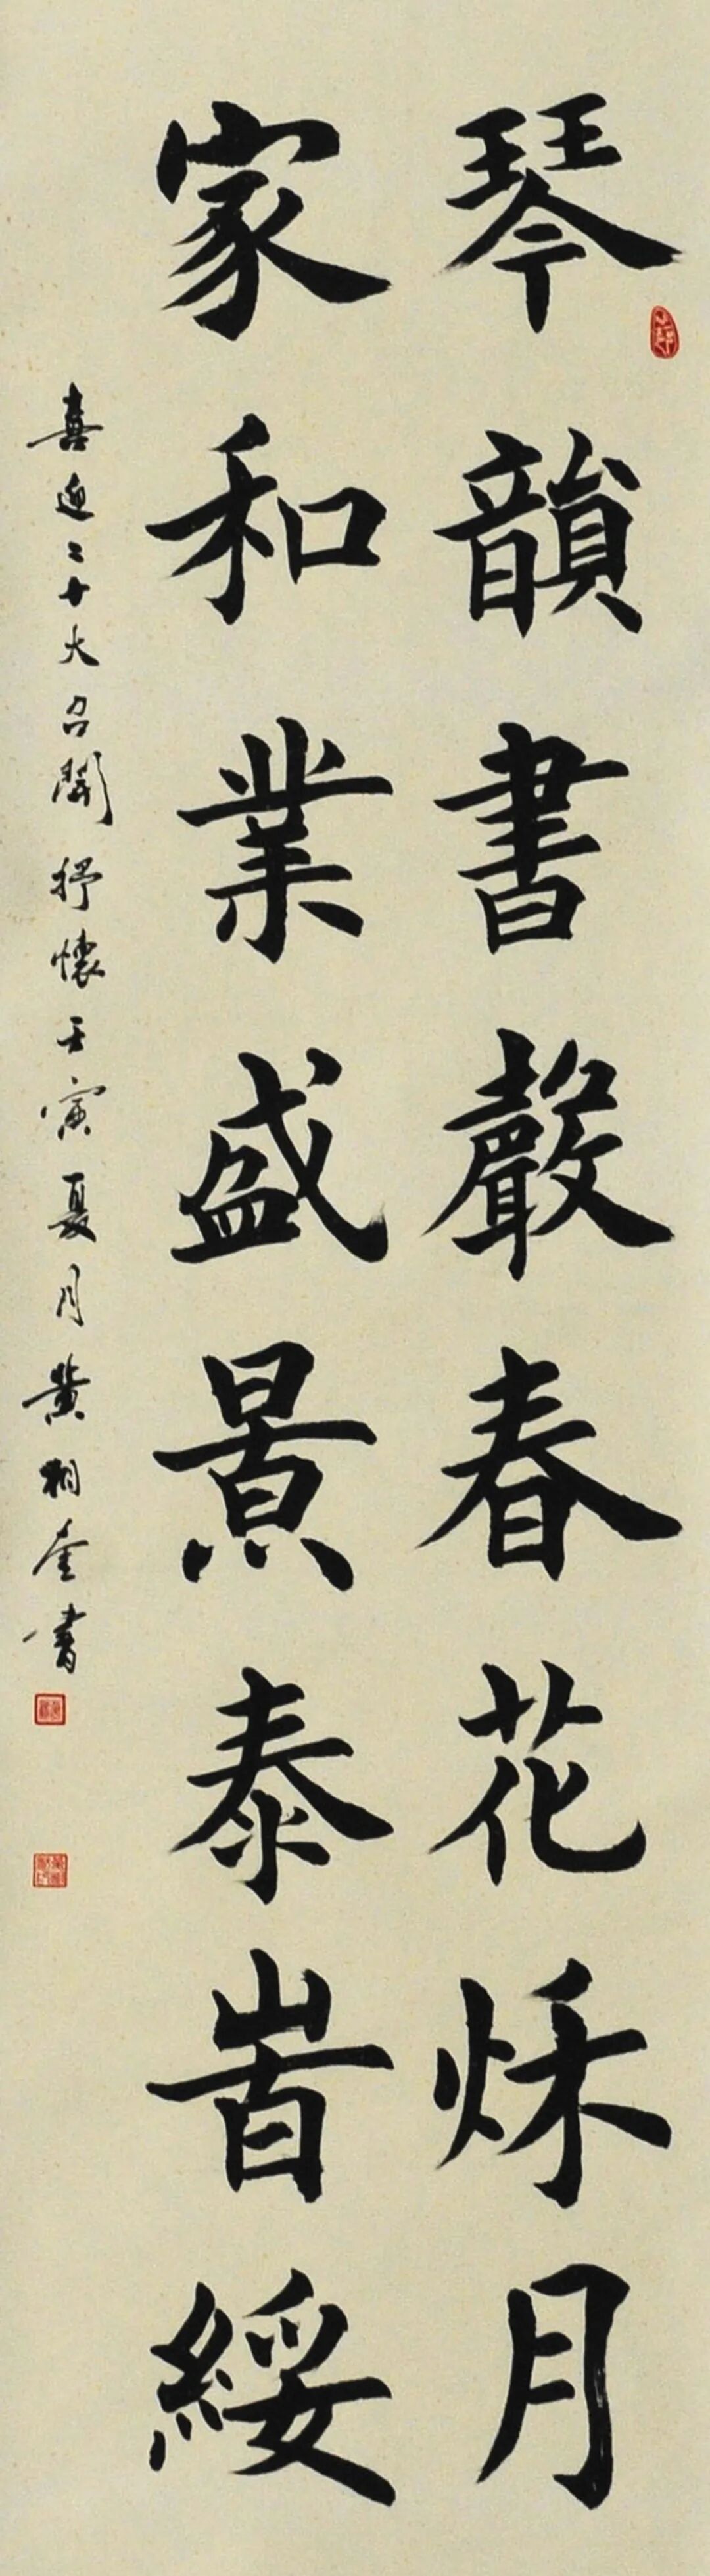 琴韻書聲春花秌月
家和業盛景泰旹綏
喜迎二十大召開抒懷壬寅夏月黃相奎書